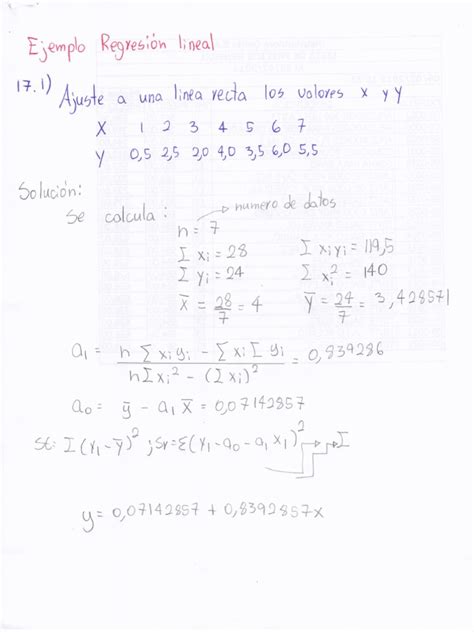 Ejemplo Regresión lineal
17.1) Ajuste a una linea recta los valores x y y
X 1 2 3 4 5 6 7
Y 0,5 2,5 2,0 4,0 3,5 6,0 5,5
Solución:
Se calcula:
→ numero de datos
n = 7
Σ xi = 28 Σ xiyi = 119,5
Σ yi = 24 Σ xi² = 140
X̄ = 28/7 = 4 Ȳ = 24/7 = 3,428571
a₁ = (n Σ xiyi − Σ xi Σ yi) / (nΣxi² − (Σxi)²) = 0,839286
a₀ = ȳ − a₁ x̄ = 0,07142857
St: Σ(Y₁ − ȳ)² ; Sr = Σ(Y₁ − a₀ − a₁ x₁)² → Σ
y = 0,07142857 + 0,8392857x